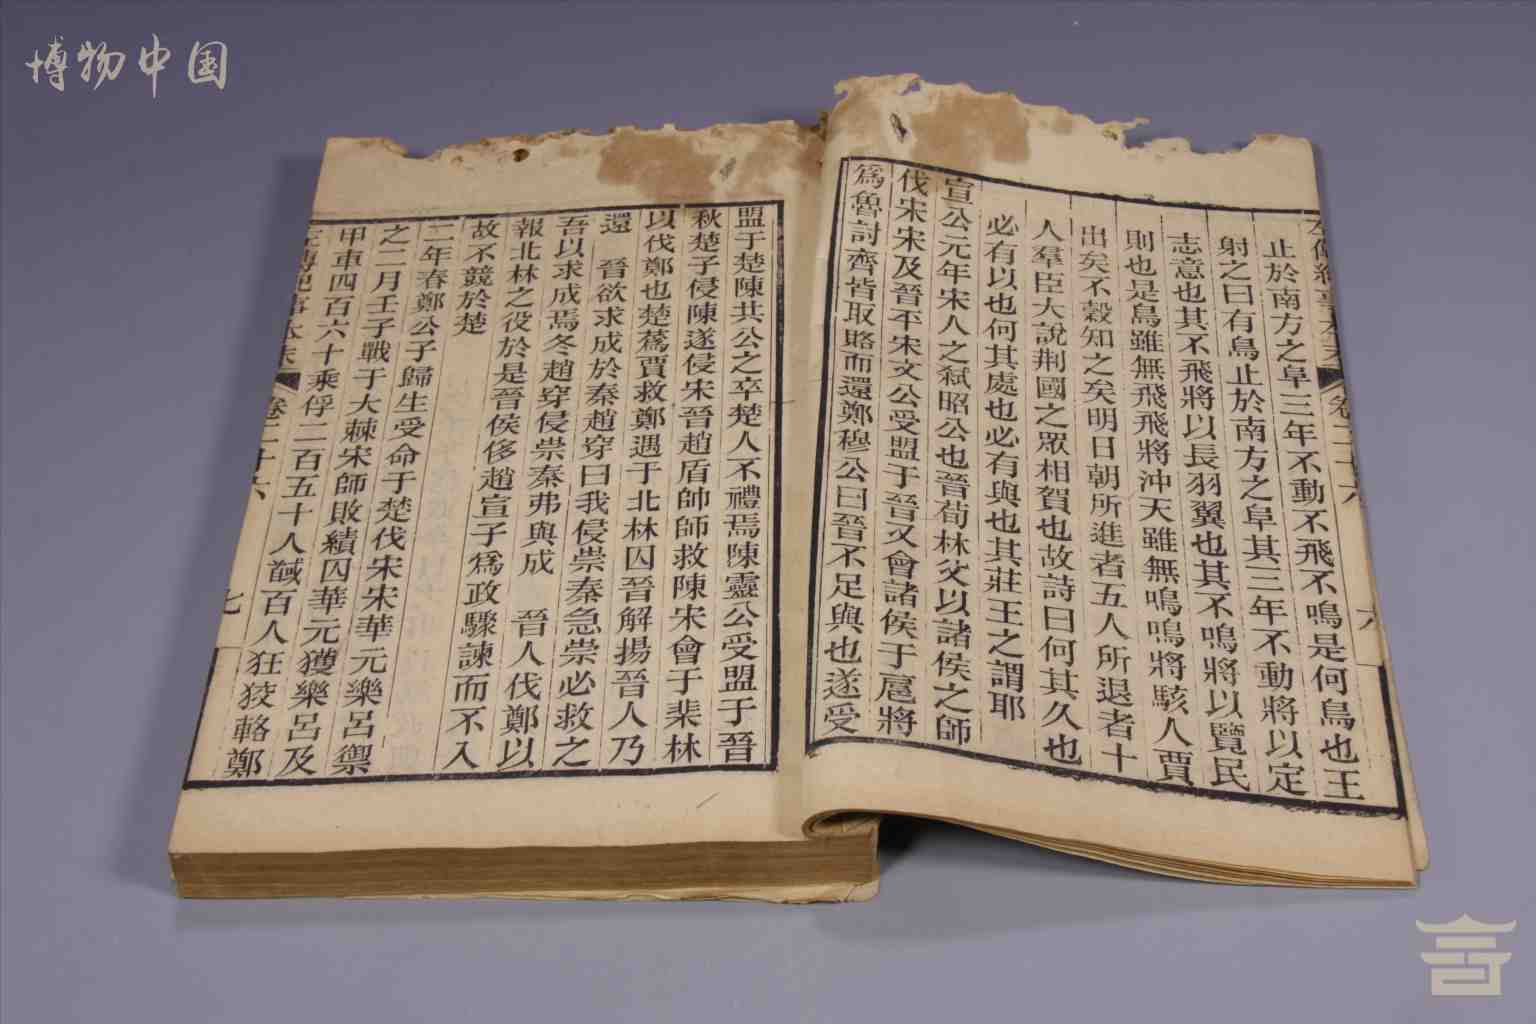 博物中国
止於南方之阜三年不動不飛不鳴是何鳥也王
射之曰有鳥止於南方之阜其三年不動將以定
志意也其不飛將以長羽翼也其不鳴將以覽民
則也是鳥雖無飛飛將沖天雖無鳴鳴將駭人賈
出矣不穀知之矣明日朝所進者五人所退者十
人羣臣大說荆國之眾相賀也故詩曰何其久也
必有以也何其處也必有與也其莊王之謂耶
宣公元年宋人之弑昭公也晉荀林父以諸侯之師
伐宋宋及晉平宋文公受盟于晉又會諸侯于扈將
爲魯討齊皆取賂而還鄭穆公曰晉不足與也遂受
盟于楚陳共公之卒楚人不禮焉陳靈公受盟于晉
秋楚子侵陳遂侵宋晉趙盾帥師救陳宋會于棐林
以伐鄭也楚蒍賈救鄭遇于北林囚晉解揚晉人乃
還 晉欲求成於秦趙穿曰我侵崇秦急崇必救之
吾以求成焉冬趙穿侵崇秦弗與成 晉人伐鄭以
報北林之役於是晉侯侈趙宣子爲政驟諫而不入
故不競於楚
二年春鄭公子歸生受命于楚伐宋宋華元樂呂禦
之二月壬子戰于大棘宋師敗績囚華元獲樂呂及
甲車四百六十乘俘二百五十人馘百人狂狡輅鄭
左傳紀事本末 卷二十六 七